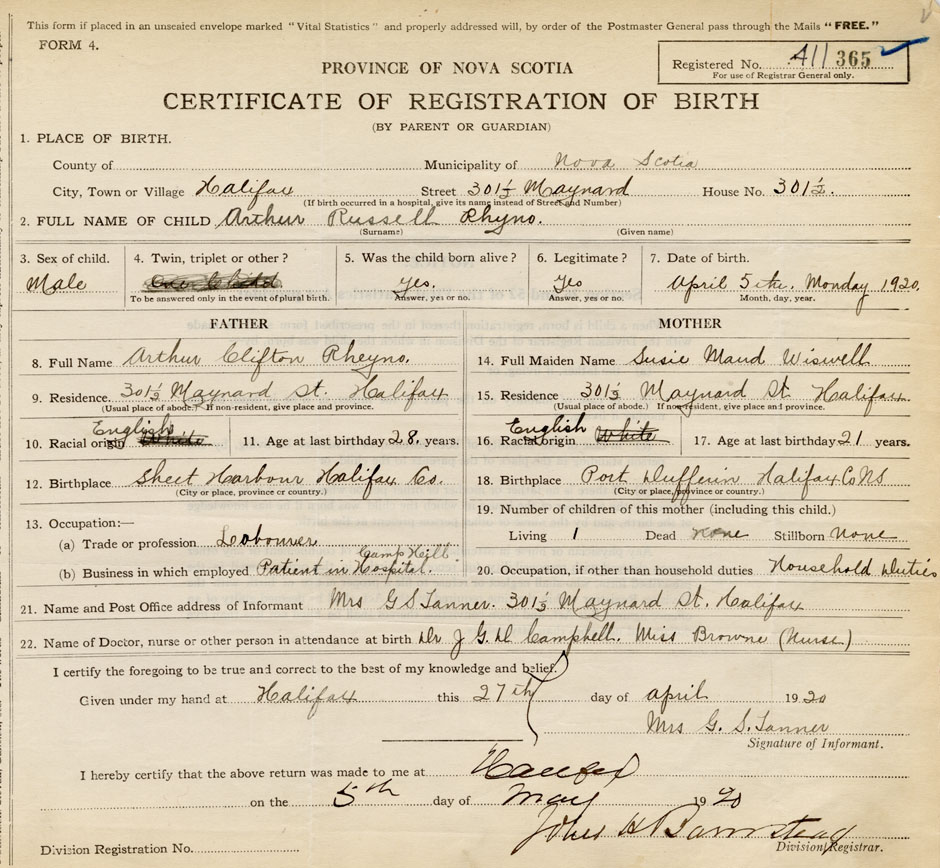 This form if placed in an unsealed envelope marked "Vital Statistics" and properly addressed will, by order of the Postmaster General pass through the Mails "FREE."
FORM 4.
Registered No. 411 365
For use of Registrar General only.
PROVINCE OF NOVA SCOTIA
CERTIFICATE OF REGISTRATION OF BIRTH
(BY PARENT OR GUARDIAN)
1. PLACE OF BIRTH.
County of Municipality of Nova Scotia
City, Town or Village Halifax Street 301½ Maynard House No. 301½.
(If birth occurred in a hospital, give its name instead of Street and Number)
2. FULL NAME OF CHILD Arthur Russell Rhyno.
(Surname) (Given name)
3. Sex of child. 4. Twin, triplet or other? 5. Was the child born alive? 6. Legitimate? 7. Date of birth.
Male One Child Yes. Yes April 5th. Monday 1920.
To be answered only in the event of plural birth. Answer, yes or no. Answer, yes or no. Month, day, year.
FATHER MOTHER
8. Full Name Arthur Clifton Rheyno. 14. Full Maiden Name Susie Maud Wiswell
9. Residence. 301½ Maynard St. Halifax 15. Residence 301½ Maynard St Halifax.
(Usual place of abode.) If non-resident, give place and province. (Usual place of abode.) If non-resident, give place and province.
English English
10. Racial origin White 11. Age at last birthday 28. years. 16. Racial origin White 17. Age at last birthday 21 years.
12. Birthplace Sheet Harbour Halifax Co. 18. Birthplace Port Dufferin Halifax Co NS
(City or place, province or country.) (City or place, province or country.)
13. Occupation:— 19. Number of children of this mother (including this child.)
(a) Trade or profession Labourer Living 1 Dead none Stillborn None
Camp Hill
(b) Business in which employed Patient in Hospital. 20. Occupation, if other than household duties Household Duties
21. Name and Post Office address of Informant Mrs G S Tanner. 301½ Maynard St. Halifax
22. Name of Doctor, nurse or other person in attendance at birth Dr. J G D Campbell. Miss Browne (Nurse)
I certify the foregoing to be true and correct to the best of my knowledge and belief.
Given under my hand at Halifax this 27th day of april 1920
Mrs G. S. Tanner
Signature of Informant.
I hereby certify that the above return was made to me at Halifax
on the 5th day of May 1920
John H Barnstead
Division Registration No. Division Registrar.